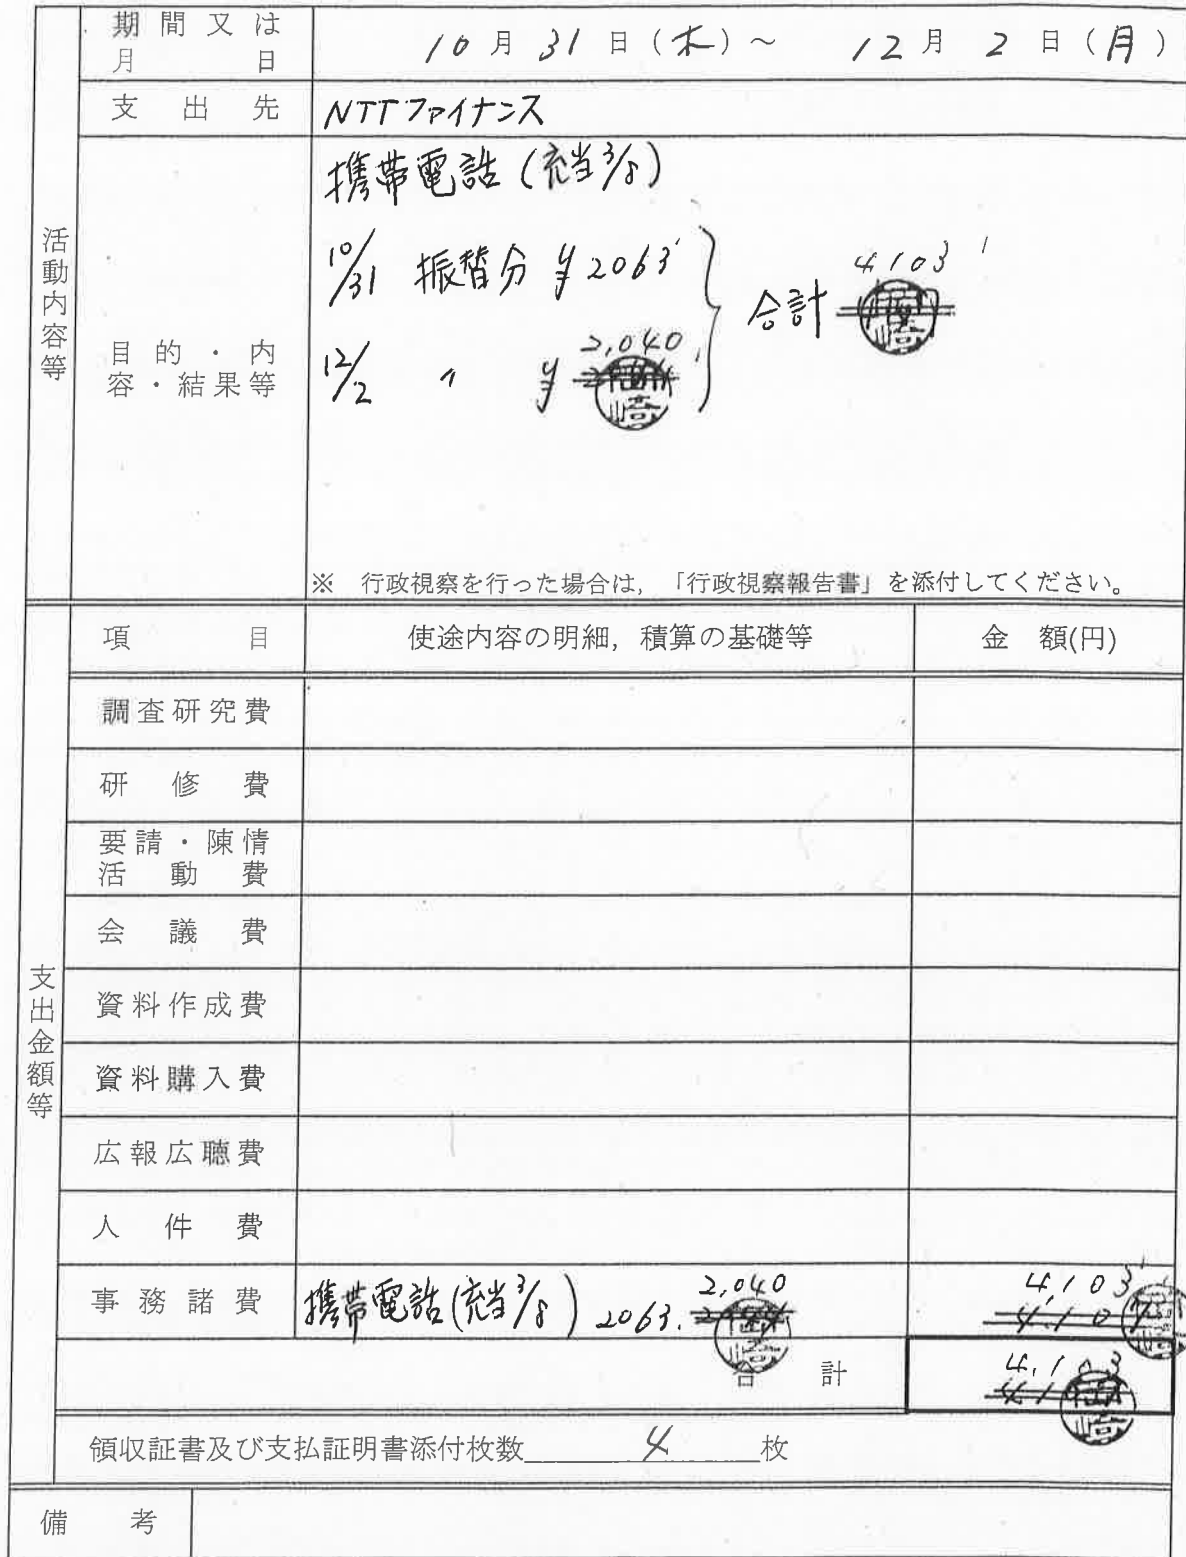 活動内容等
期間又は
月日
10月31日(木)~ 12月2日(月)
支出先
NTTファイナンス
目的・内
容・結果等
携帯電話(充当3/8)
10/31 振替分 ¥2063
2,040
12/2 〃 ¥
合計 4103
※ 行政視察を行った場合は,「行政視察報告書」を添付してください。
支出金額等
項目
使途内容の明細,積算の基礎等
金額(円)
調査研究費
研修費
要請・陳情
活動費
会議費
資料作成費
資料購入費
広報広聴費
人件費
事務諸費
携帯電話(充当3/8) 2063. 2,040
4,103
4,107
合計
4,103
領収証書及び支払証明書添付枚数 4 枚
備考